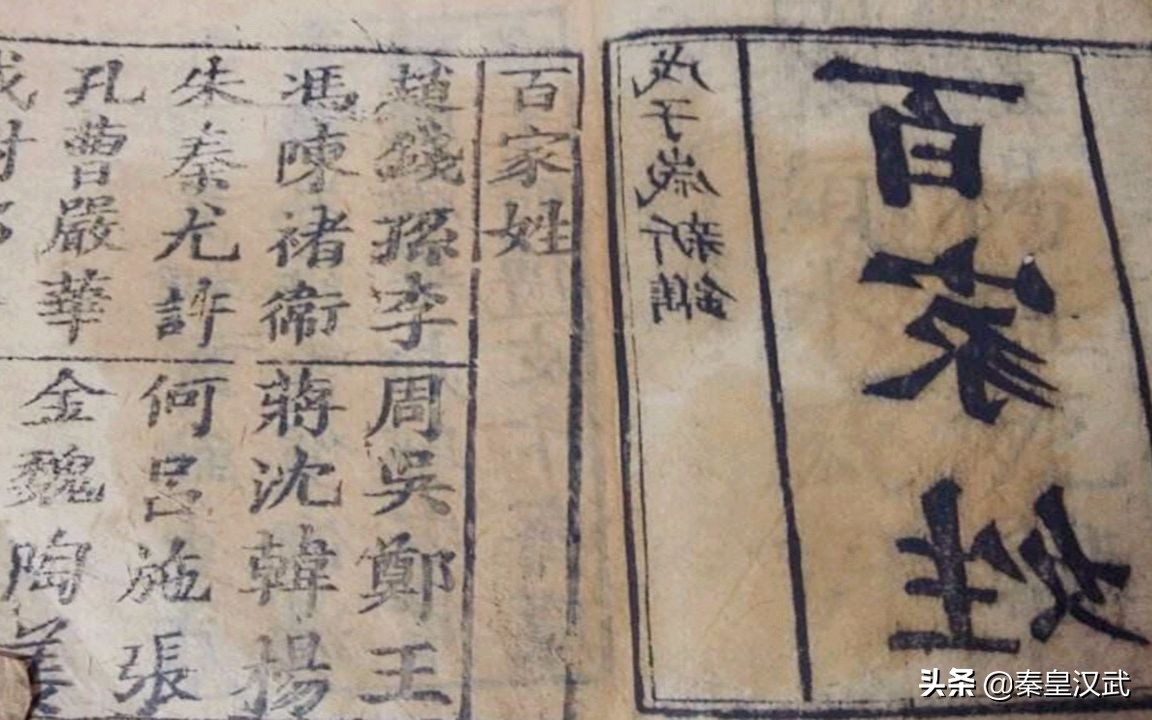 百家姓
戊子歲新鐫
百家姓
趙錢孫李 周吳鄭王
馮陳褚衛 蔣沈韓揚
朱秦尤許 何呂施張
孔曹嚴華 金魏陶姜
头条 @秦皇汉武